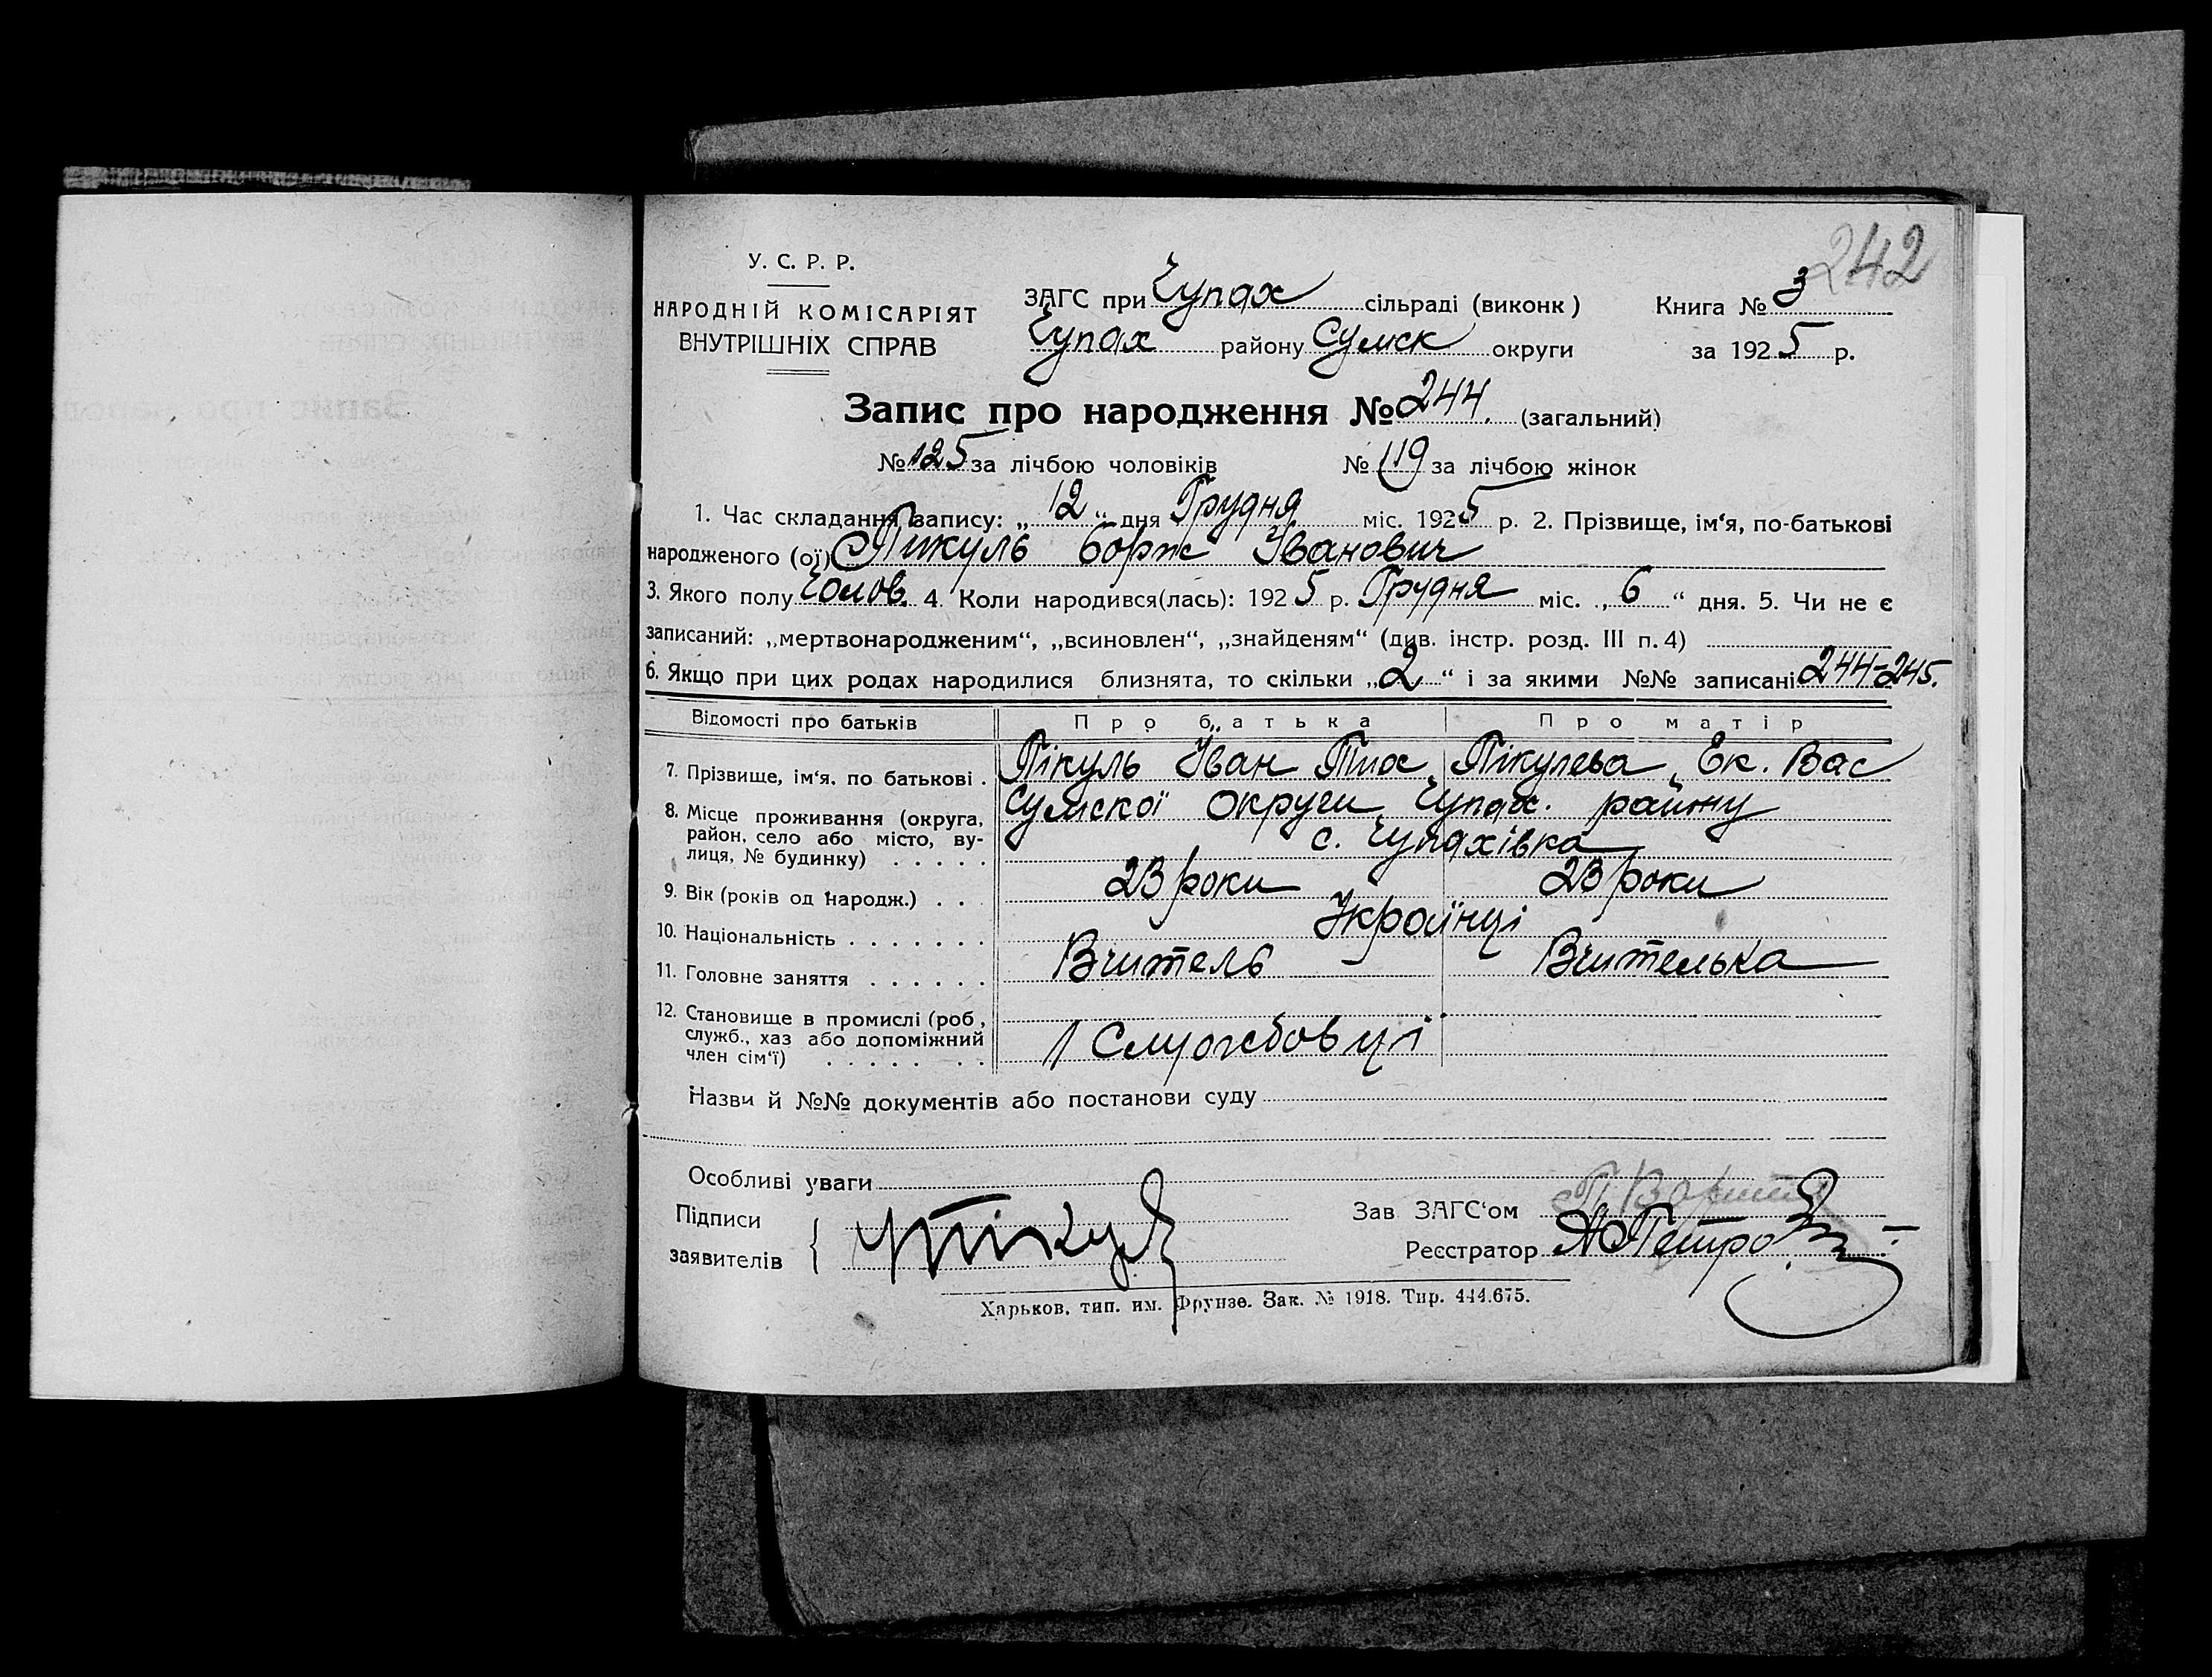 242
У. С. Р. Р.
НАРОДНІЙ КОМІСАРІЯТ
ВНУТРІШНІХ СПРАВ
ЗАГС при Чупах сільраді (виконк)
Чупах району Сумск округи
Книга № 3
за 1925 р.
Запис про народження № 244. (загальний)
№ 125 за лічбою чоловіків № 119 за лічбою жінок
1. Час складання запису: „12“ дня Грудня міс. 1925 р. 2. Прізвище, ім‘я, по-батькові
народженого (ої) Пікуль Іванович
3. Якого полу Чолов. 4. Коли народився(лась): 1925 р. Грудня міс. „6“ дня. 5. Чи не є
записаний: „мертвонародженим“, „всиновлен“, „знайденям“ (див. інстр. розд. III п. 4)
6. Якщо при цих родах народилися близнята, то скільки „2“ і за якими №№ записані 244-245.
Відомості про батьків Про батька Про матір
7. Прізвище, ім‘я, по батькові . Пікуль Іван Тих. Пікулева Ек. Вас
8. Місце проживання (округа, район, село або місто, вулиця, № будинку) . . . . . Сумскої округи Чупах. району
с. Чупахівка
9. Вік (років од народж.) . . . 23 роки 23 роки
10. Національність . . . . . . . Українці
11. Головне заняття . . . . . . Вчитель Вчителька
12. Становище в промислі (роб, служб., хаз або допоміжний член сім‘ї) . . . . . . . Службовці
Назви й №№ документів або постанови суду
Особливі уваги
Підписи
заявителів
Пікуль
Зав ЗАГС‘ом
Реєстратор
Харьков, тип. им. Фрунзе. Зак. № 1918. Тир. 444.675.